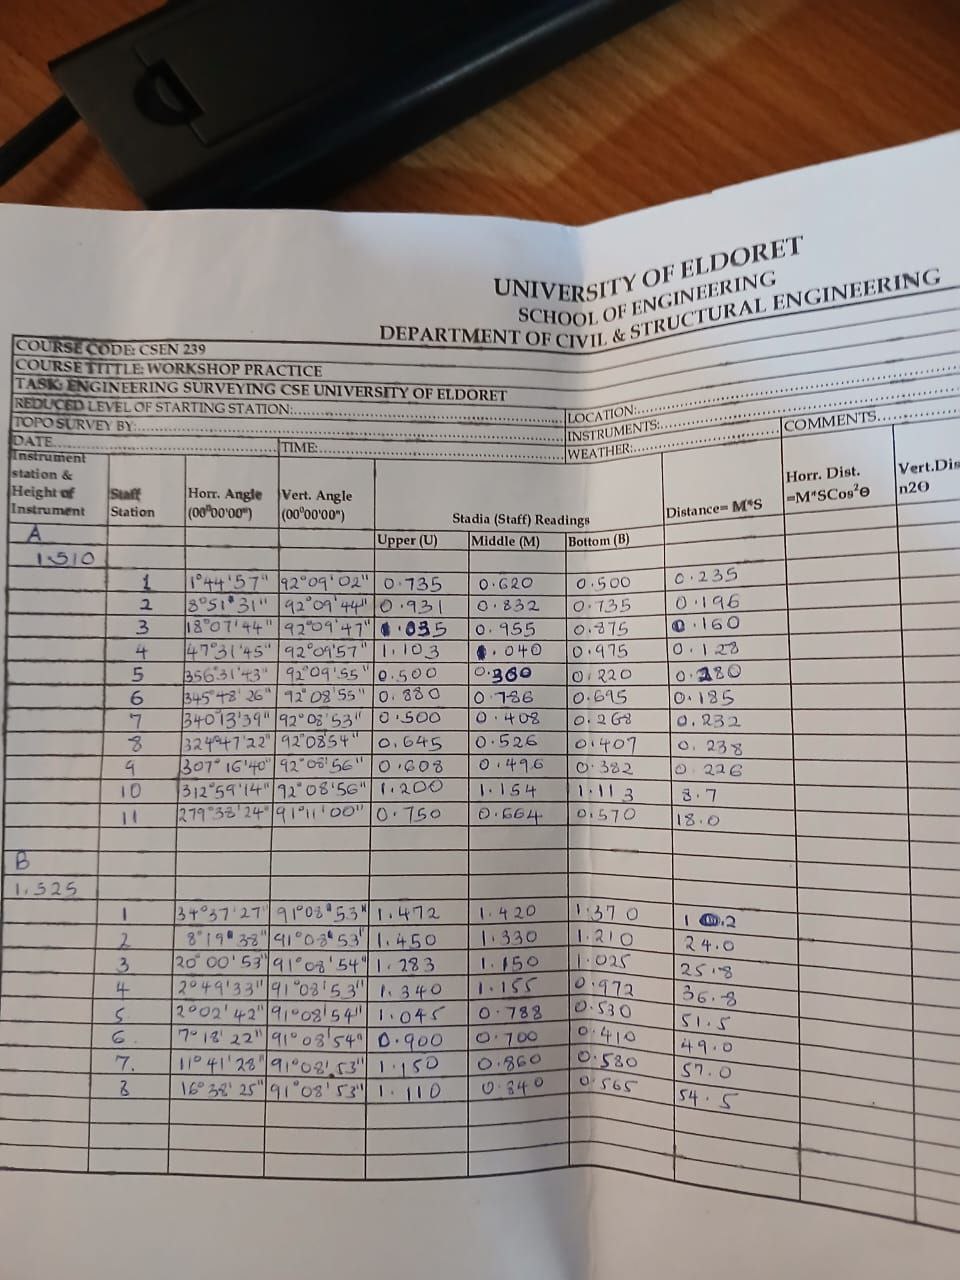 UNIVERSITY OF ELDORET
SCHOOL OF ENGINEERING
DEPARTMENT OF CIVIL & STRUCTURAL ENGINEERING
COURSE CODE: CSEN 239
COURSE TITTLE: WORKSHOP PRACTICE
TASK: ENGINEERING SURVEYING CSE UNIVERSITY OF ELDORET
REDUCED LEVEL OF STARTING STATION: LOCATION:
TOPO SURVEY BY: INSTRUMENTS: COMMENTS
DATE TIME: WEATHER:
Instrument station & Height of Instrument Staff Station Horr. Angle (00⁰00'00") Vert. Angle (00⁰00'00") Stadia (Staff) Readings Distance= M*S Horr. Dist. =M*SCos²Θ Vert.Dis n2Θ
Upper (U) Middle (M) Bottom (B)
A
1.510
1 1°44'57" 92°09'02" 0.735 0.620 0.500 0.235
2 8°51'31" 92°09'44" 0.931 0.832 0.735 0.196
3 18°07'44" 92°09'47" 1.035 0.955 0.875 0.160
4 47°31'45" 92°09'57" 1.103 1.040 0.975 0.128
5 356°31'43" 92°09'55" 0.500 0.360 0.220 0.280
6 345°48'26" 92°08'55" 0.880 0.786 0.695 0.185
7 340°13'39" 92°08'53" 0.500 0.408 0.268 0.232
8 324°47'22" 92°08'54" 0.645 0.526 0.407 0.238
9 307°16'40" 92°08'56" 0.608 0.496 0.382 0.226
10 312°59'14" 92°08'56" 1.200 1.154 1.113 8.7
11 279°38'24" 91°11'00" 0.750 0.664 0.570 18.0
B
1.525
1 34°37'27" 91°08'53" 1.472 1.420 1.370
2 8°19'38" 91°08'53" 1.450 1.330 1.210 24.0
3 20°00'53" 91°08'54" 1.283 1.150 1.025 25.8
4 2°49'33" 91°08'53" 1.340 1.155 0.972 36.8
5. 2°02'42" 91°08'54" 1.045 0.788 0.530 51.5
6. 7°18'22" 91°08'54" 0.900 0.700 0.410 49.0
7. 11°41'28" 91°08'53" 1.150 0.860 0.580 57.0
8 16°38'25" 91°08'53" 1.110 0.840 0.565 54.5